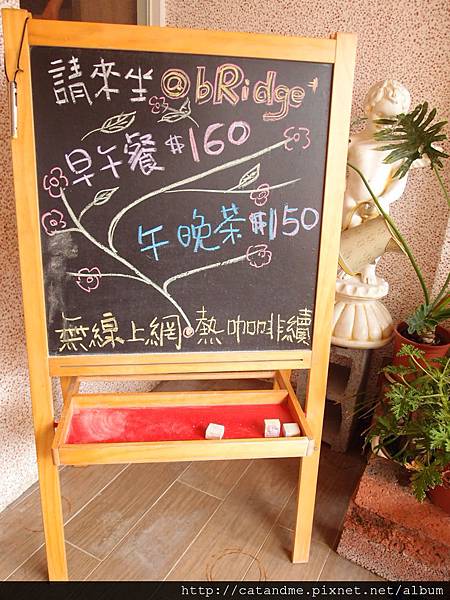 請來坐@bRidge
早午餐$160
午晚茶$150
無線上網.熱咖啡續
http://catandme.pixnet.net/album